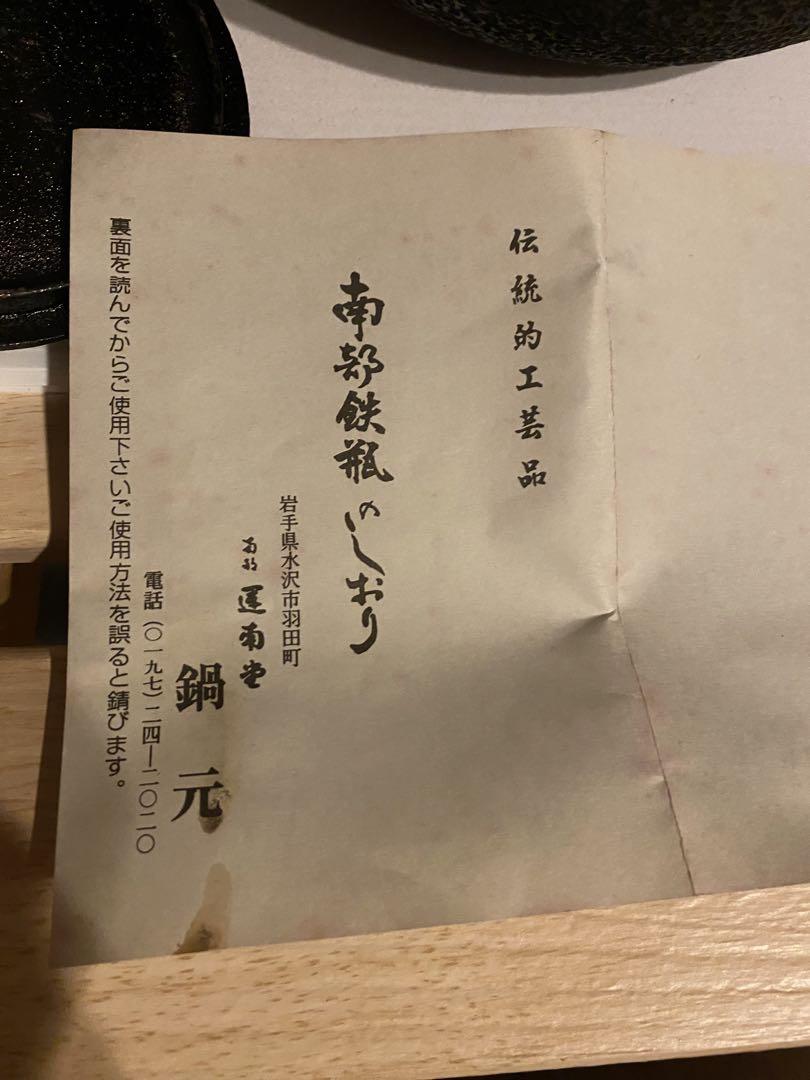 伝統的工芸品
南部鉄瓶のしおり
岩手県水沢市羽田町
南部 運南堂
鍋元
電話（〇一九七）二四―二〇二〇
裏面を読んでからご使用下さいご使用方法を誤ると錆びます。